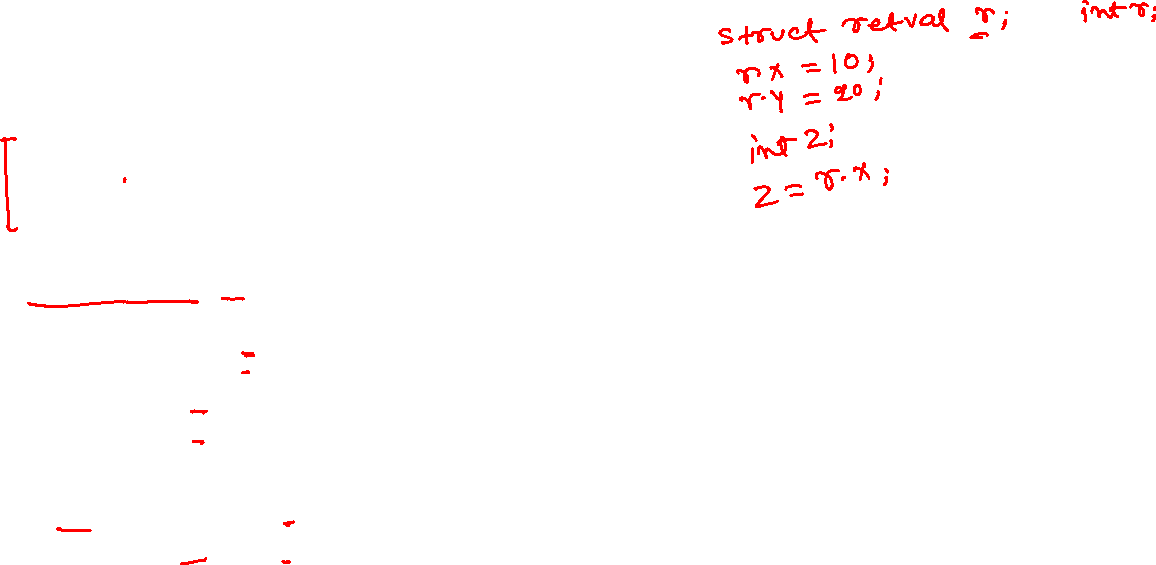 struct retval r; int r;
r.x = 10;
r.y = 20;
int z;
z = r.x;